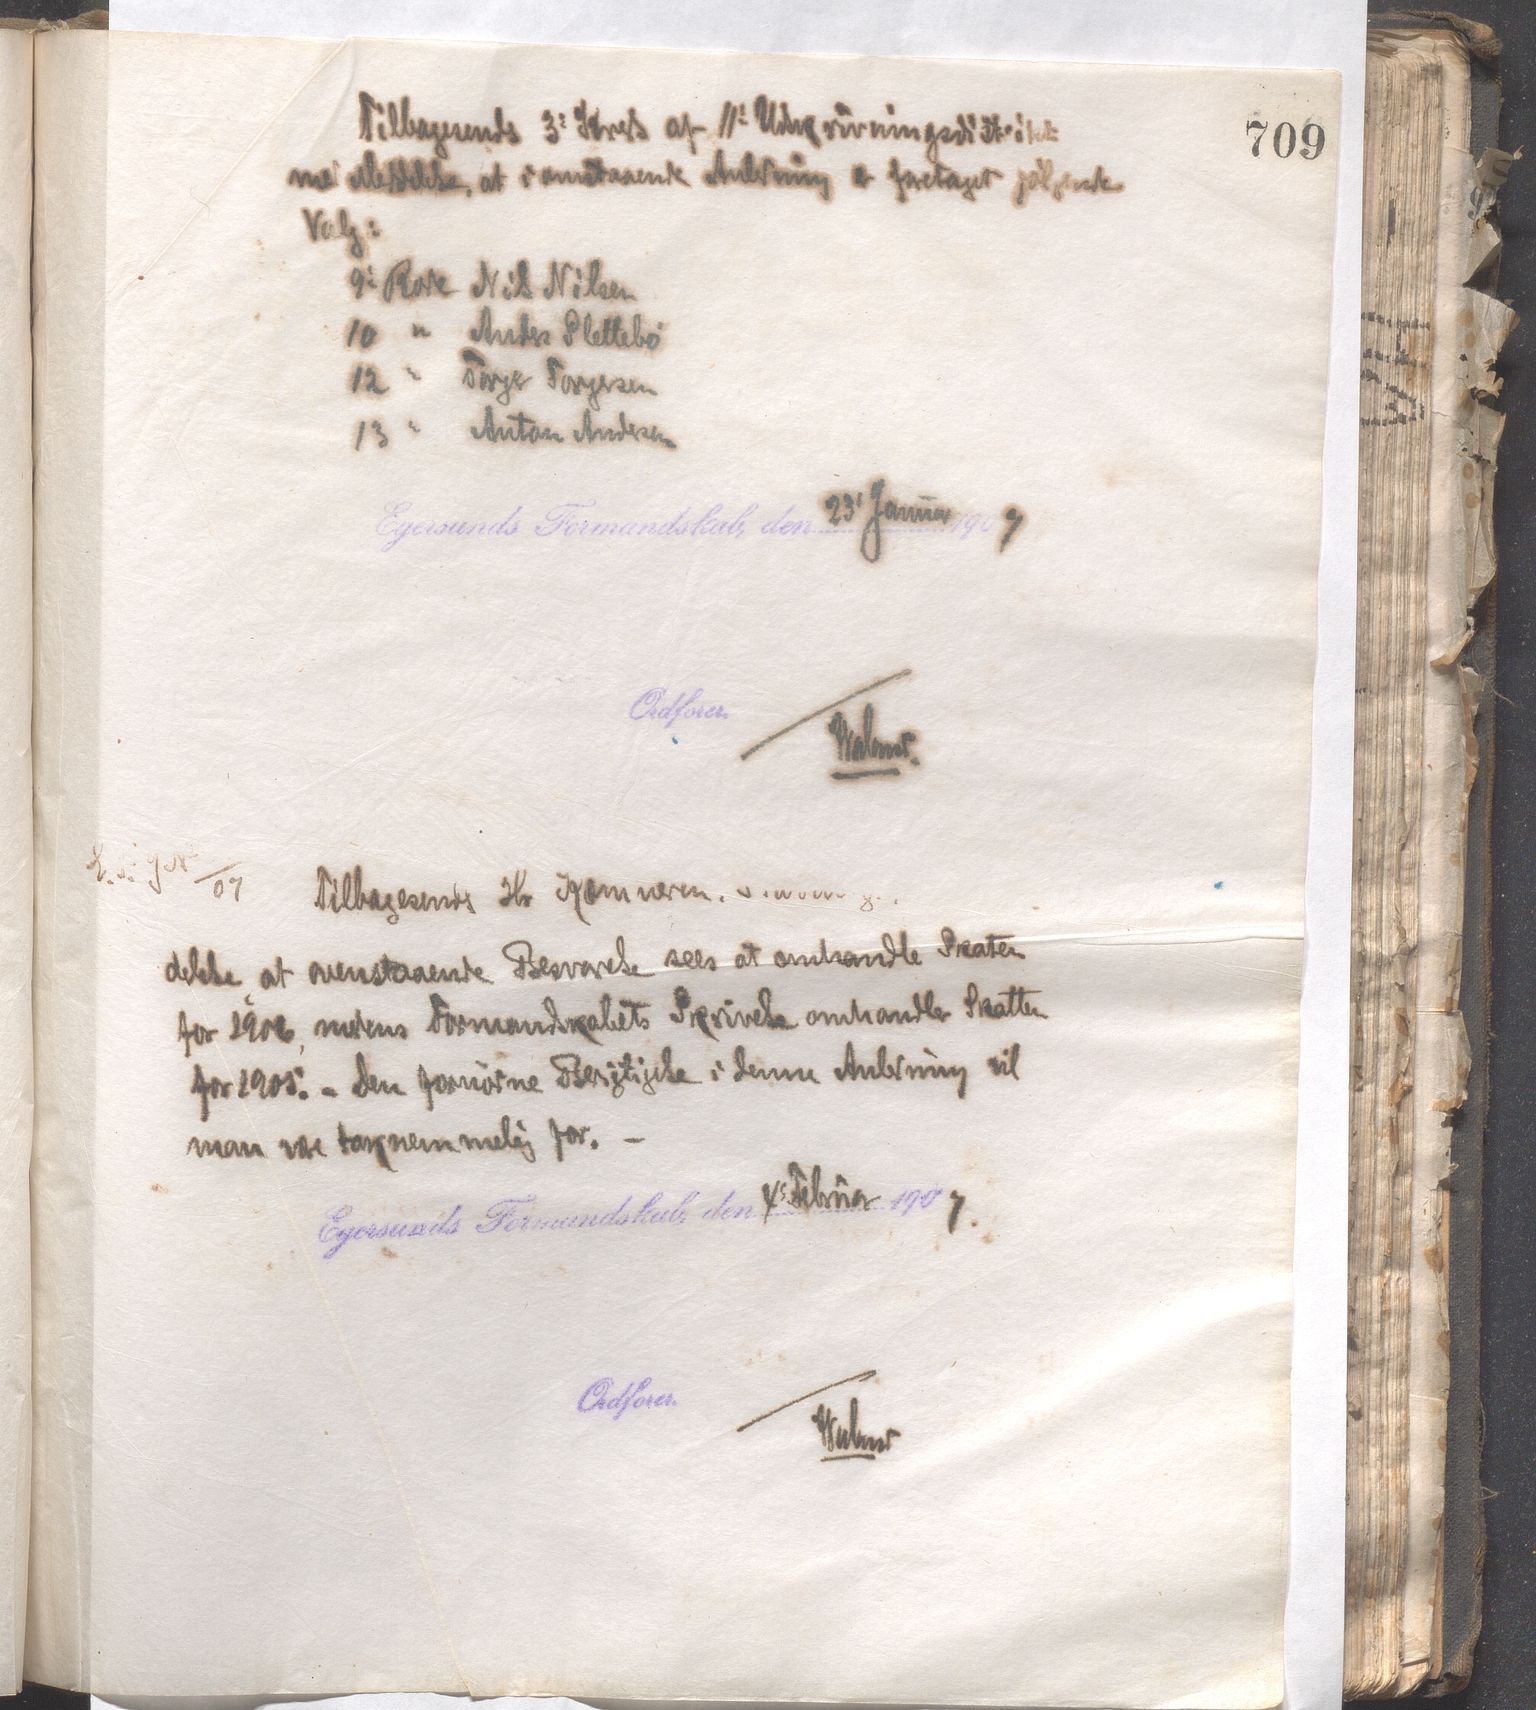 709
Tilbagesends 3: Kreds af 11: Udskrivningsdistrikt
med Meddelelse, at i omstaaende Anledning er foretaget følgende
Valg:
9: Rode Nils Nilsen
10 " Anders Slettebø
12 " Torger Torgersen
13 " Anton Andersen
Egersunds Formandskab, den 23' Januar 1907
Ordfører.
Tilbagesends Hr Kæmneren
07
delelse, at ovenstaaende Besvarelse sees at omhandle Skatten
for 1906, medens Formandskabets Skrivelse omhandler Skatten
for 1905. - Den fornødne Berigtigelse i denne Anledning vil
man være taknemmelig for. -
Egersunds Formandskab, den 4' Februar 1907.
Ordfører.